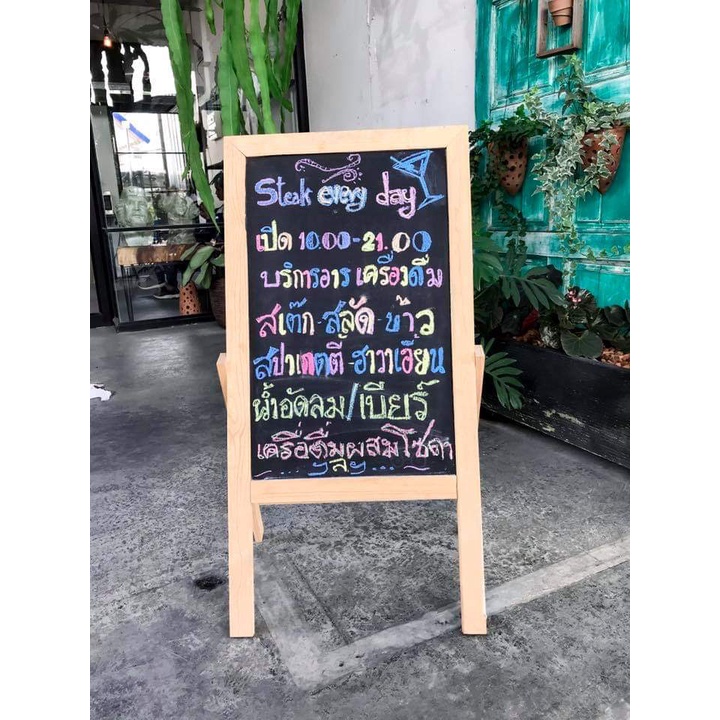 Steak every day
เปิด 10.00-21.00
บริการอาร เครื่องดื่ม
สเต๊ก-สลัด-ข้าว
สปาเกตตี้-ฮาวาเอี้ยน
น้ำอัดลม/เบียร์
เครื่องดื่มผสมโซดา
ฯลฯ...